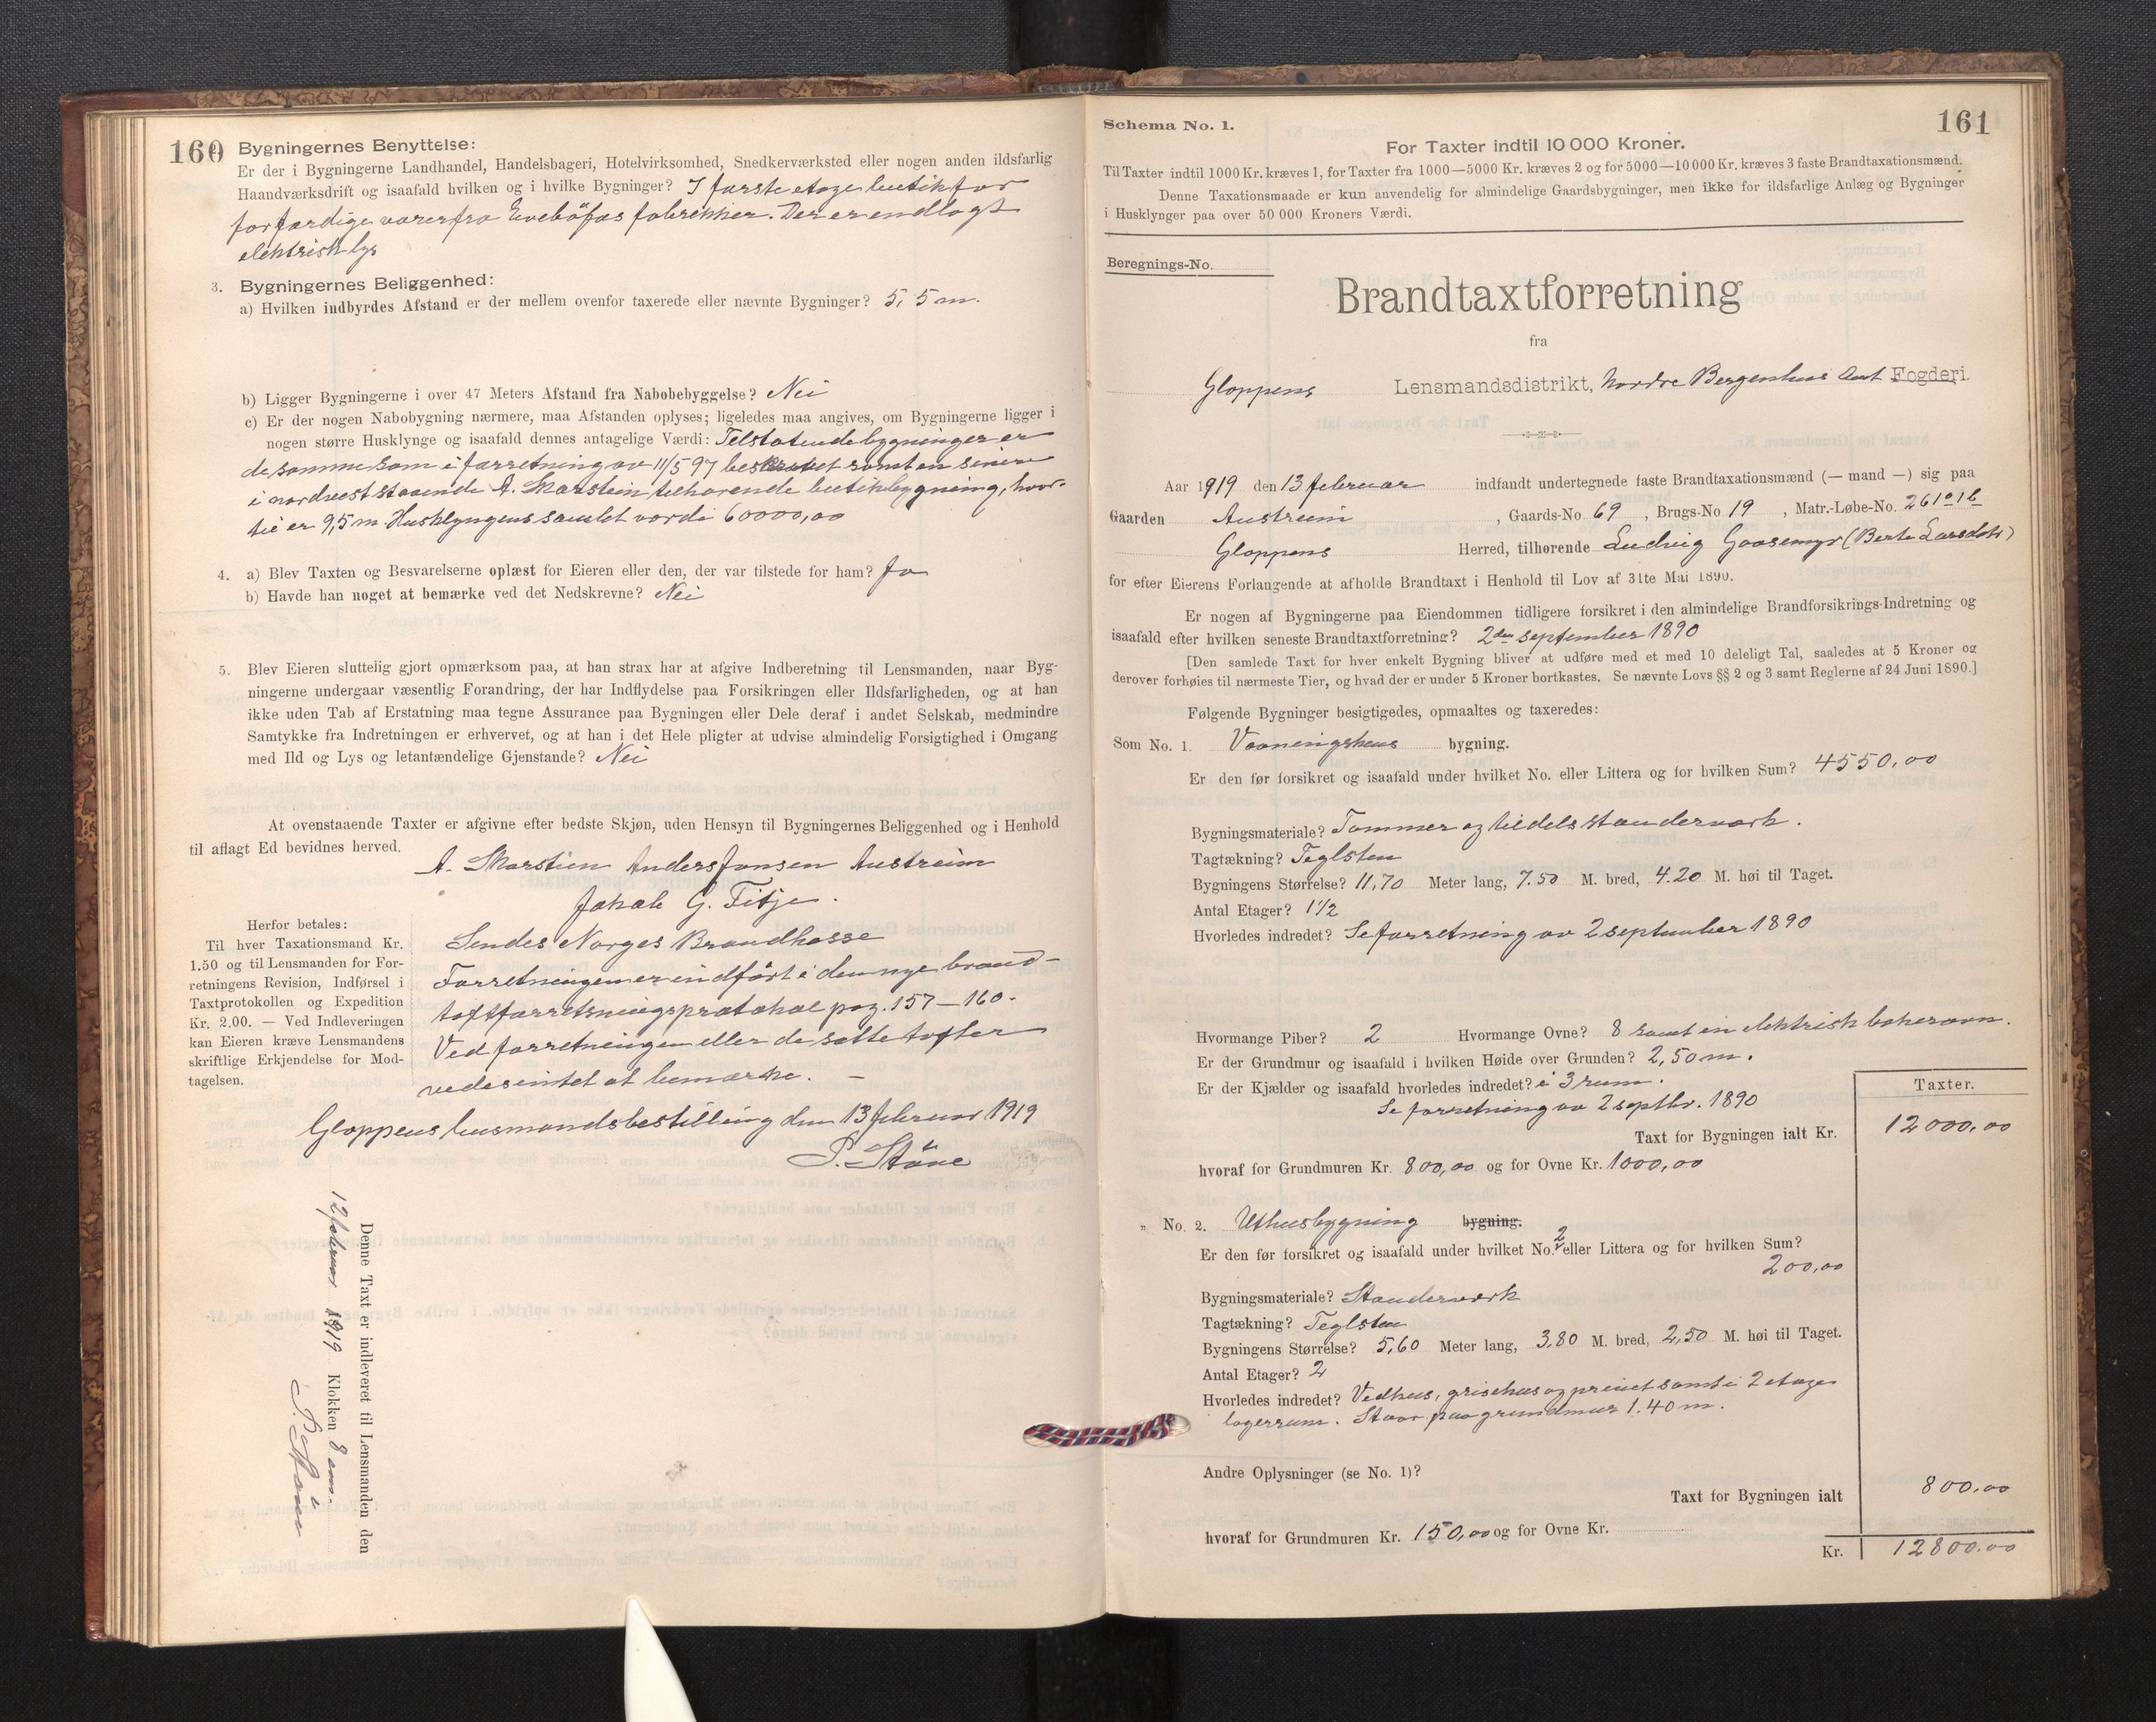 160
Bygningernes Benyttelse:
Er der i Bygningerne Landhandel, Handelsbageri, Hotelvirksomhed, Snedkerværksted eller nogen anden ildsfarlig
Haandværksdrift og isaafald hvilken og i hvilke Bygninger? I første etage butik for
forfærdige varer fra Evebøfos fabrikker. Der er endlagt
elektrisk lys
3. Bygningernes Beliggenhed:
a) Hvilken indbyrdes Afstand er der mellem ovenfor taxerede eller nævnte Bygninger? 5,5 m.
b) Ligger Bygningerne i over 47 Meters Afstand fra Nabobebyggelse? Nei
c) Er der nogen Nabobygning nærmere, maa Afstanden oplyses; ligeledes maa angives, om Bygningerne ligger i
nogen større Husklynge og isaafald dennes antagelige Værdi: Tilstøtende bygninger er
de samme som i forretning av 11/5 97 beskrevet samt en senere
i nordvest staaende A. Skarstein tilhørende butikbygning, hvor-
til er 9,5 m. Husklyngens samlet værdi 60000,00
4. a) Blev Taxten og Besvarelserne oplæst for Eieren eller den, der var tilstede for ham? Ja
b) Havde han noget at bemærke ved det Nedskrevne? Nei
5. Blev Eieren sluttelig gjort opmærksom paa, at han strax har at afgive Indberetning til Lensmanden, naar Byg-
ningerne undergaar væsentlig Forandring, der har Indflydelse paa Forsikringen eller Ildsfarligheden, og at han
ikke uden Tab af Erstatning maa tegne Assurance paa Bygningen eller Dele deraf i andet Selskab, medmindre
Samtykke fra Indretningen er erhvervet, og at han i det Hele pligter at udvise almindelig Forsigtighed i Omgang
med Ild og Lys og letantændelige Gjenstande? Nei
At ovenstaaende Taxter er afgivne efter bedste Skjøn, uden Hensyn til Bygningernes Beliggenhed og i Henhold
til aflagt Ed bevidnes herved.
A. Skarstien Anders Jonsen Austreim
Jakob G. Fitje.
Herfor betales:
Til hver Taxationsmand Kr.
1.50 og til Lensmanden for For-
retningens Revision, Indførsel i
Taxtprotokollen og Expedition
Kr. 2.00. — Ved Indleveringen
kan Eieren kræve Lensmandens
skriftlige Erkjendelse for Mod-
tagelsen.
Sendes Norges Brandkasse
Forretningen er indført i den nye brand-
taxtforretningsprotokol pag. 157 — 160.
Ved forretningen eller de satte taxter
vides intet at bemærke. —
Gloppens lensmandsbestilling den 13 februar 1919
P. Støve
Denne Taxt er indleveret til Lensmanden den
12 februar 1919 Klokken 8 em.
P. Støve
161
Schema No. 1.
For Taxter indtil 10 000 Kroner.
Til Taxter indtil 1000 Kr. kræves 1, for Taxter fra 1000—5000 Kr. kræves 2 og for 5000—10000 Kr. kræves 3 faste Brandtaxationsmænd.
Denne Taxationsmaade er kun anvendelig for almindelige Gaardsbygninger, men ikke for ildsfarlige Anlæg og Bygninger
i Husklynger paa over 50 000 Kroners Værdi.
Beregnings-No.
Brandtaxtforretning
fra
Gloppens Lensmandsdistrikt, Nordre Bergenhus Amt Fogderi.
Aar 1919 den 13 februar indfandt undertegnede faste Brandtaxationsmænd (— mand —) sig paa
Gaarden Austreim, Gaards-No 69, Brugs-No 19, Matr.-Løbe-No. 261a1b
Gloppens Herred, tilhørende Ludvig Gaasemyr (Berte Larsdotr)
for efter Eierens Forlangende at afholde Brandtaxt i Henhold til Lov af 31te Mai 1890.
Er nogen af Bygningerne paa Eiendommen tidligere forsikret i den almindelige Brandforsikrings-Indretning og
isaafald efter hvilken seneste Brandtaxtforretning? 2den september 1890
[Den samlede Taxt for hver enkelt Bygning bliver at udføre med et med 10 deleligt Tal, saaledes at 5 Kroner og
derover forhøies til nærmeste Tier, og hvad der er under 5 Kroner bortkastes. Se nævnte Lovs §§ 2 og 3 samt Reglerne af 24 Juni 1890.]
Følgende Bygninger besigtigedes, opmaaltes og taxeredes:
Som No. 1. Vaaningshus bygning.
Er den før forsikret og isaafald under hvilket No. eller Littera og for hvilken Sum? 4550,00
Bygningsmateriale? Tømmer og tildels standerværk.
Tagtækning? Teglsten
Bygningens Størrelse? 11,70 Meter lang, 7.50 M. bred, 4.20 M. høi til Taget.
Antal Etager? 1½
Hvorledes indredet? Se forretning av 2 september 1890
Hvormange Piber? 2 Hvormange Ovne? 8 samt en elektrisk bakerovn.
Er der Grundmur og isaafald i hvilken Høide over Grunden? 2,50 m.
Er der Kjælder og isaafald hvorledes indredet? i 3 rum.
Se forretning av 2 septbr. 1890
Taxter.
Taxt for Bygningen ialt Kr. 12000,00
hvoraf for Grundmuren Kr. 800,00 og for Ovne Kr. 1000,00
" No. 2. Uthusbygning bygning.
Er den før forsikret og isaafald under hvilket No. 2 eller Littera og for hvilken Sum?
200,00
Bygningsmateriale? Standerværk
Tagtækning? Teglsten
Bygningens Størrelse? 5,60 Meter lang, 3,80 M. bred, 2,50 M. høi til Taget.
Antal Etager? 2
Hvorledes indredet? Vedhus, grisehus og privet samt i 2 etage
lagerrum. Staar paa grundmur 1.40 m.
Andre Oplysninger (se No. 1)?
Taxt for Bygningen ialt 800,00
hvoraf for Grundmuren Kr. 150,00 og for Ovne Kr.
Kr. 12800,00